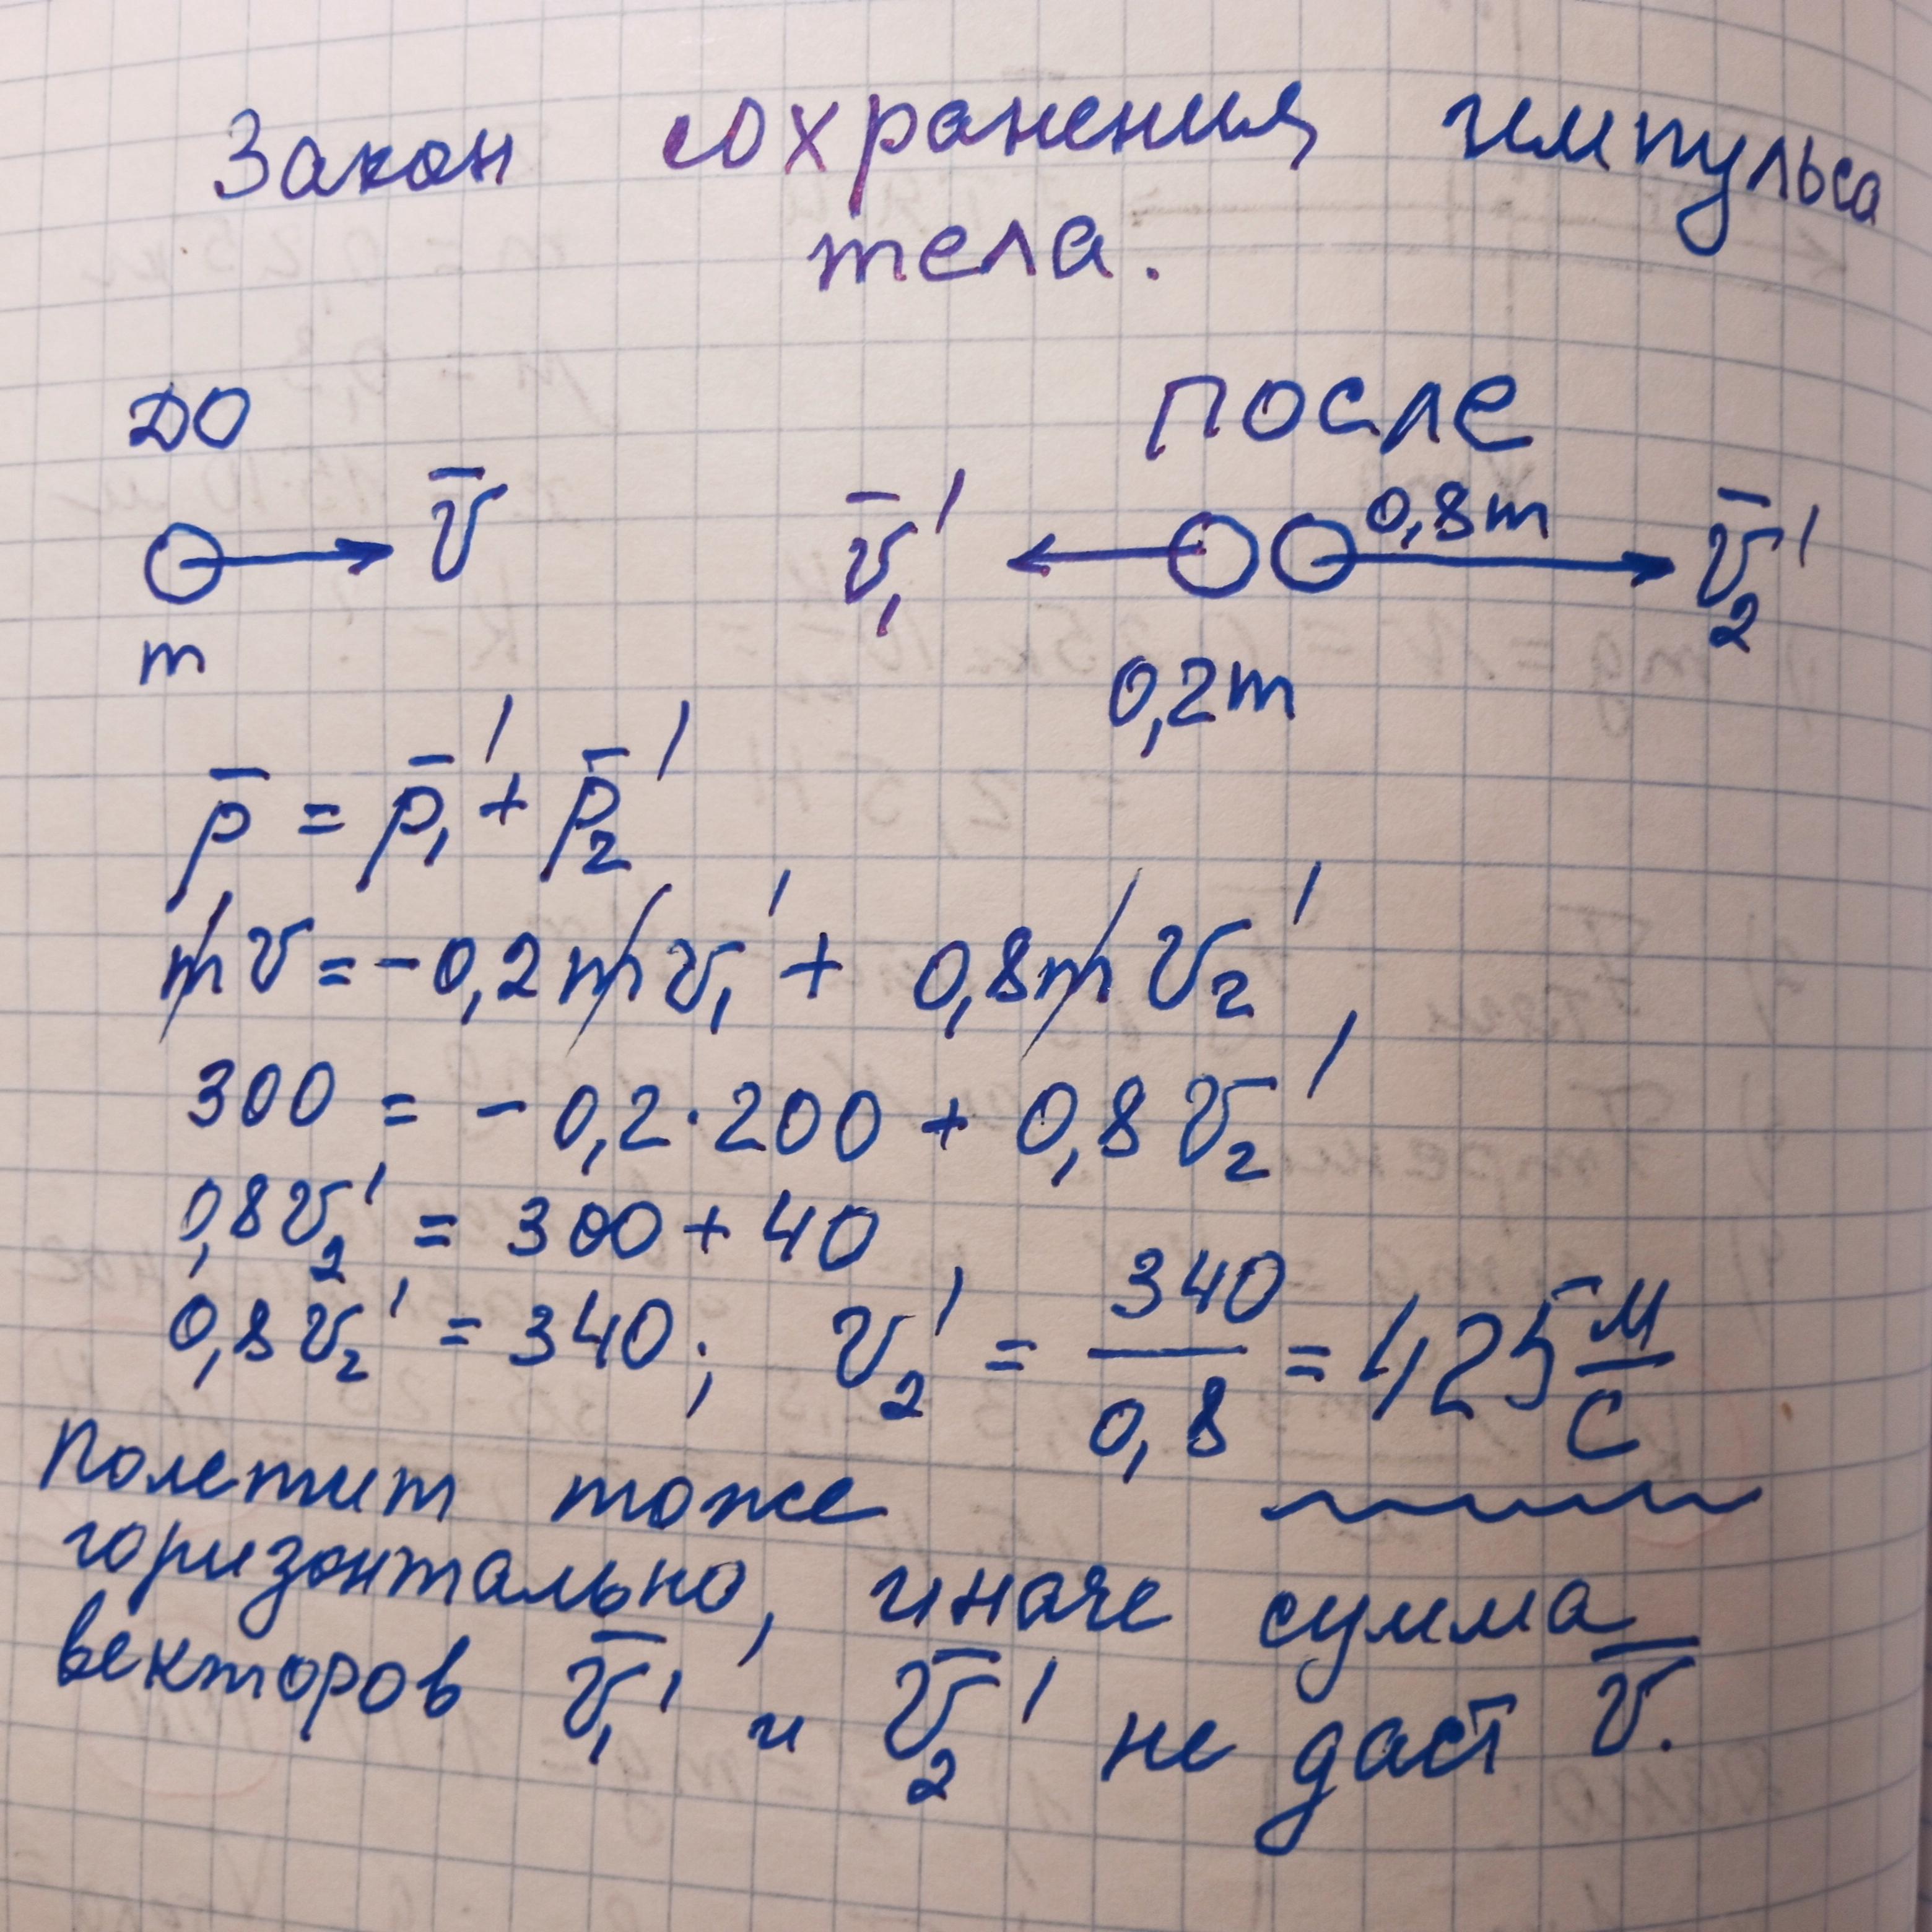 Закон сохранения импульса
тела.
ДО ПОСЛЕ
v̅ v̅₁' 0,8m v̅₂'
m 0,2m
p̅ = p̅₁' + p̅₂'
mv = -0,2mv₁' + 0,8mv₂'
300 = -0,2·200 + 0,8v₂'
0,8v₂' = 300 + 40
0,8v₂' = 340; v₂' = 340/0,8 = 425 м/с
Полетит тоже
горизонтально, иначе сумма
векторов v̅₁' и v̅₂' не даст v̅.